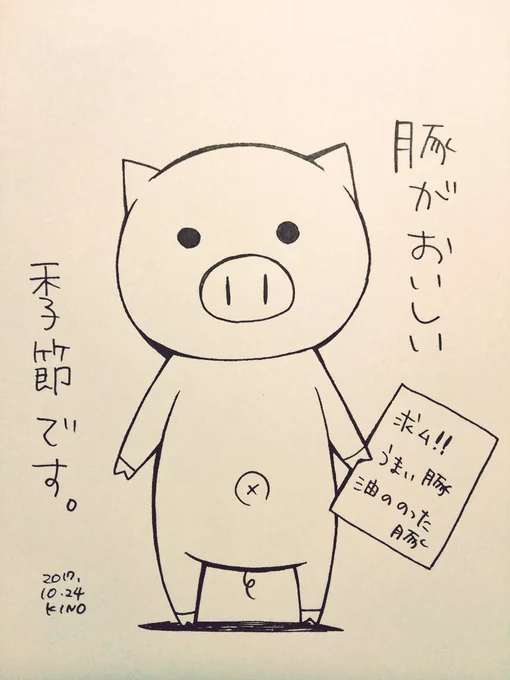 豚がおいしい
季節です。
求ム!!
うまい豚
油ののった
豚
2017.
10.24
KINO